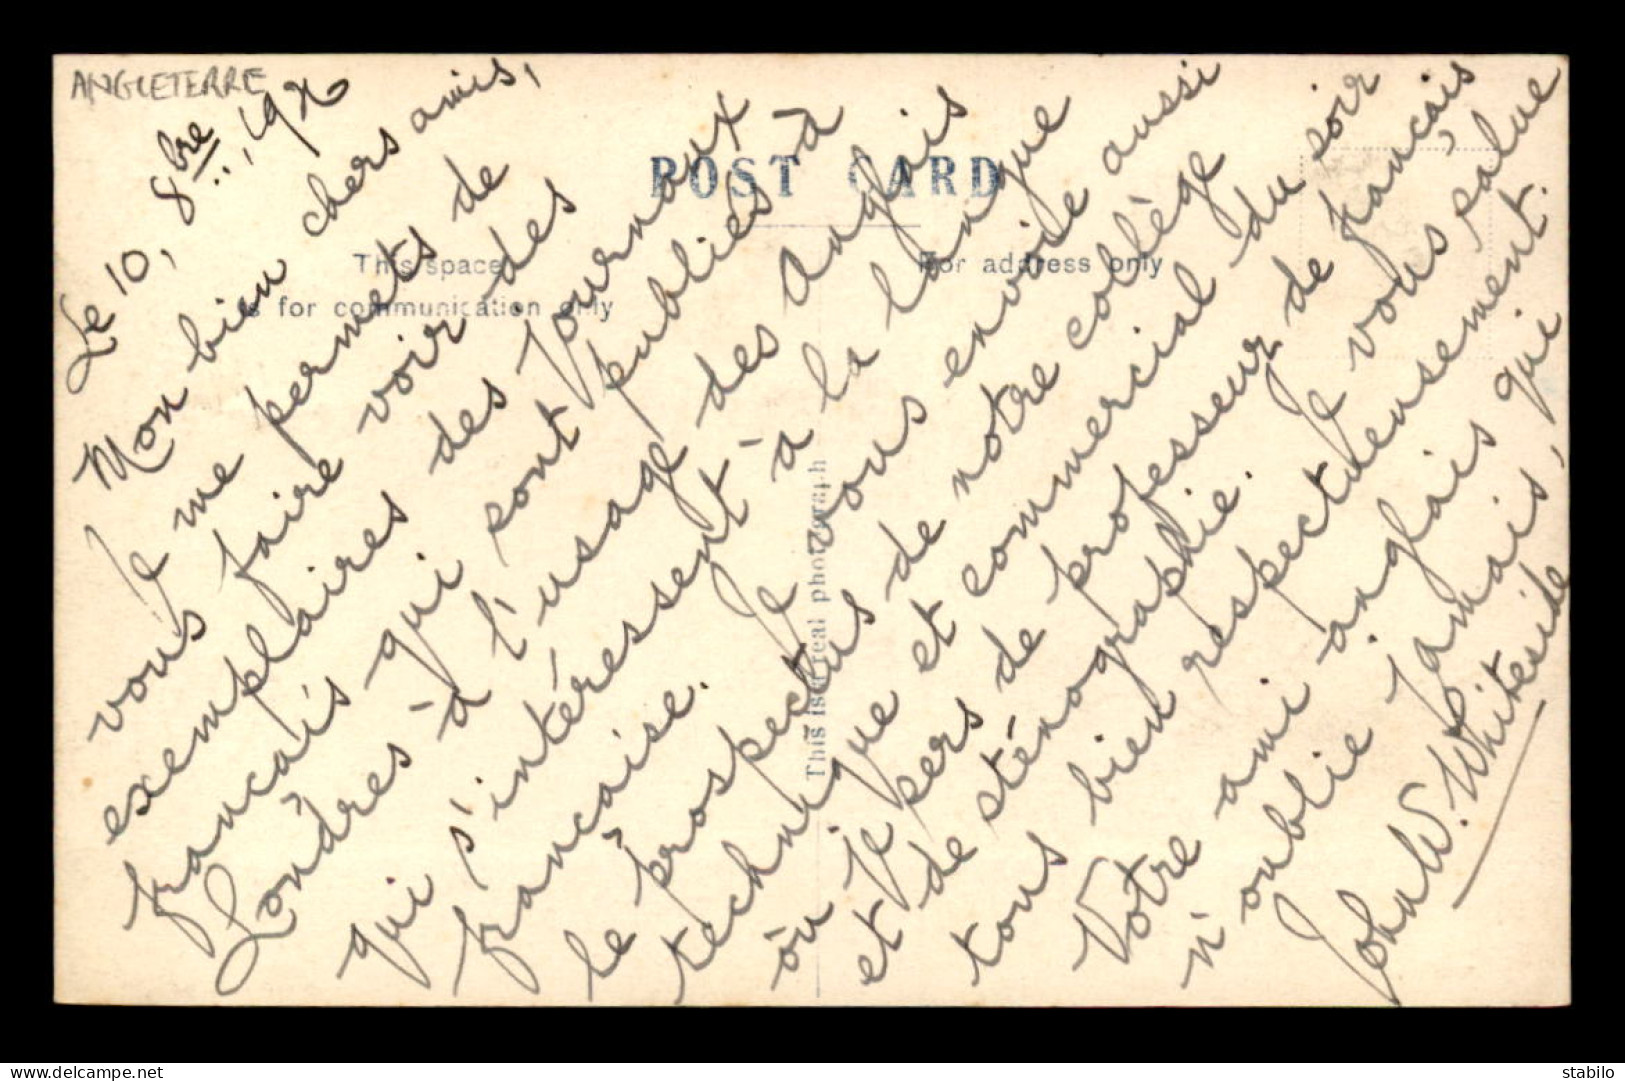 ANGLETERRE
Le 10, 8bre.., 1926
Mon bien chers amis,
Je me permets de
vous faire voir des
exemplaires des journaux
français qui sont publiés à
Londres à l'usage des anglais
qui s'intéressent à la langue
française. Je vous envoie aussi
le prospectus de notre collège
technique et commercial du soir
òu je sers de professeur de français
et de sténographie. Je vous salue
tous bien respectueusement.
Votre ami anglais qui
n'oublie jamais,
John W. Whiteside
POST CARD
This space
is for communication only
For address only
This is a real photograph
delcampe.net
stabilo